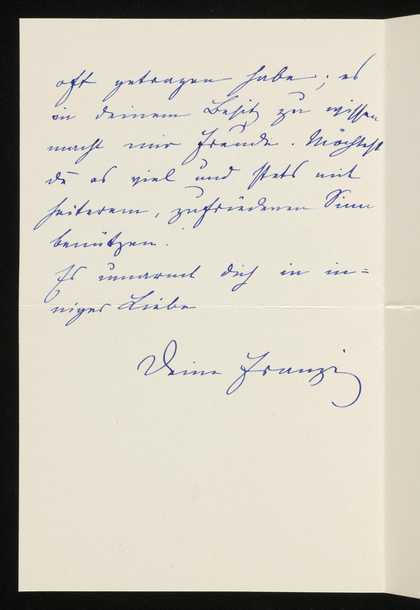 oft getragen habe; es
in deinem Besitz zu wissen
macht mir Freude. Möchtest
du es viel und stets mit
heiterem, zufriedenen Sinn
benützen.
Es umarmt dich in in=
niger Liebe
Deine Franzi